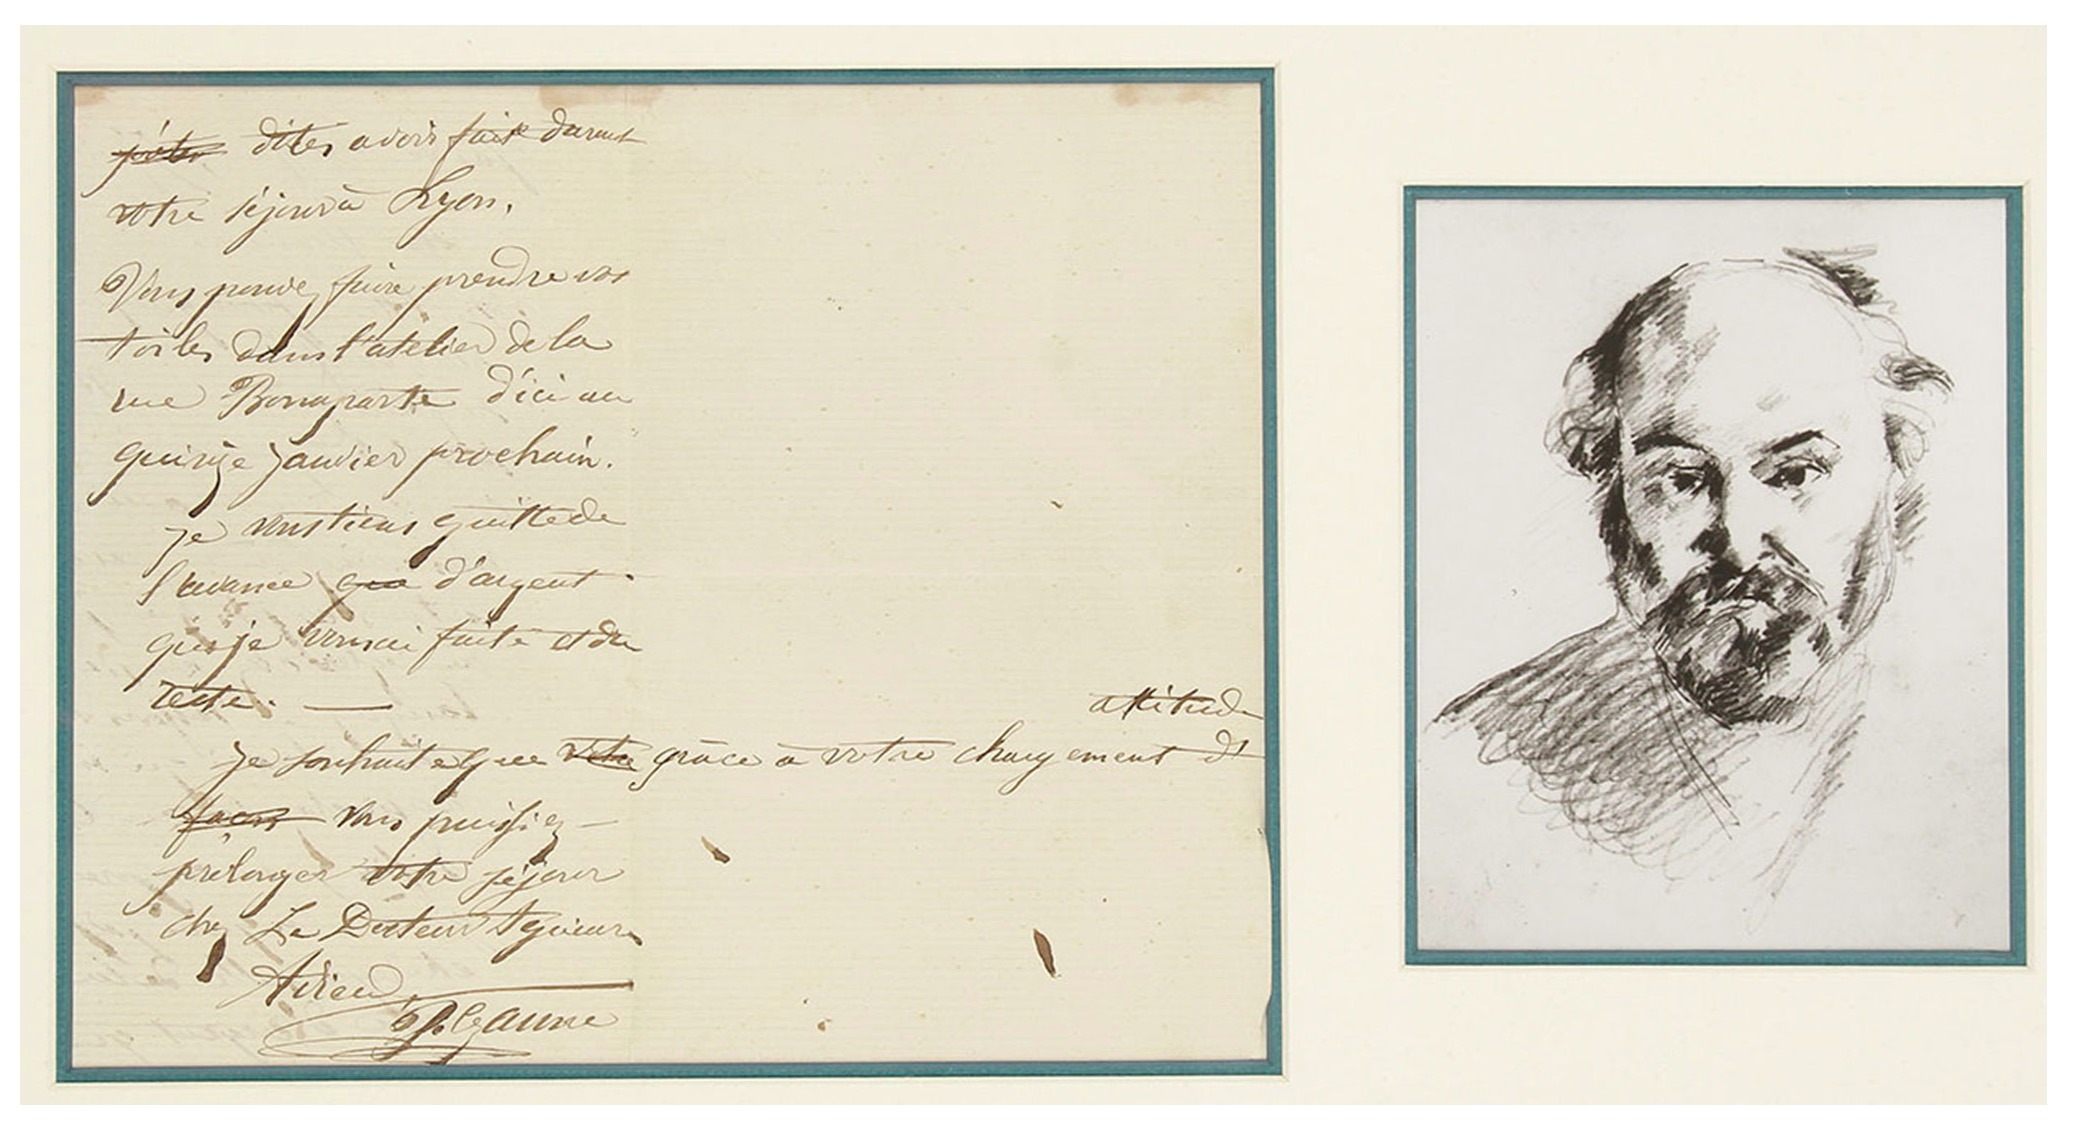 dites avoir fait durant
votre séjour à Lyon.
Vous pouvez faire prendre vos
toiles dans l'atelier de la
rue Bonaparte d'ici au
quinze janvier prochain.
je vous tiens quitte de
l'avance que d'argent
que je vous ai faite et du
reste. —
attitude
je souhaite que votre grâce à votre changement d'
vous puissiez
prolonger votre séjour
chez Le Docteur
Adieu
P. Cezanne